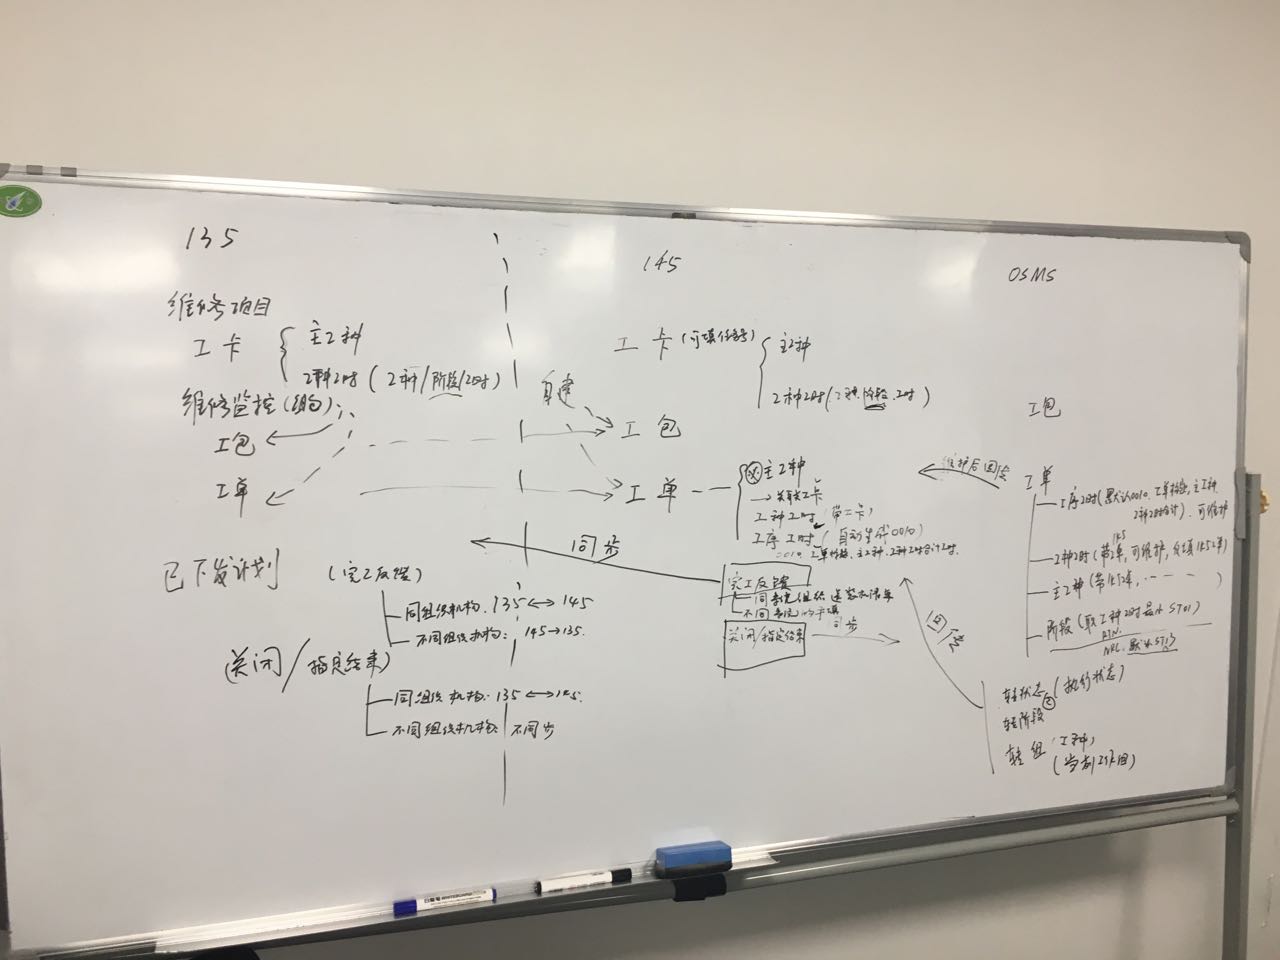 135
维修项目
工卡
主工种
工种工时（工种/阶段/工时）
维修监控（组包）
工包
工单
已下发计划
（完工反馈）
同组织机构：135 ↔ 145
不同组织机构：145→135
关闭/指定结束）
同组织机构：135 ↔ 145
不同组织机构：不同步
自建
145
工卡（可填任务号）
主工种
工种工时（工种.阶段.工时）
工包
工单
主工种
→关联工卡
工种工时（带工卡）
工序工时（自动生成0010）
0010，主工种，工种工时合计工时
同步
完工反馈
关闭/指定结束
同步
OSMS
工包
维护后回传
工单
工序工时（默认0010，主工种
工种工时合计），可维护
145
工种工时（带工单，可维护，反填145工单）
主工种（带145工单，－－－）
阶段（取工种工时最小ST01）
RTN.
NRC.默认ST
回传
转状态（执行状态）
转阶段
转组（工种，
（当前工作组）